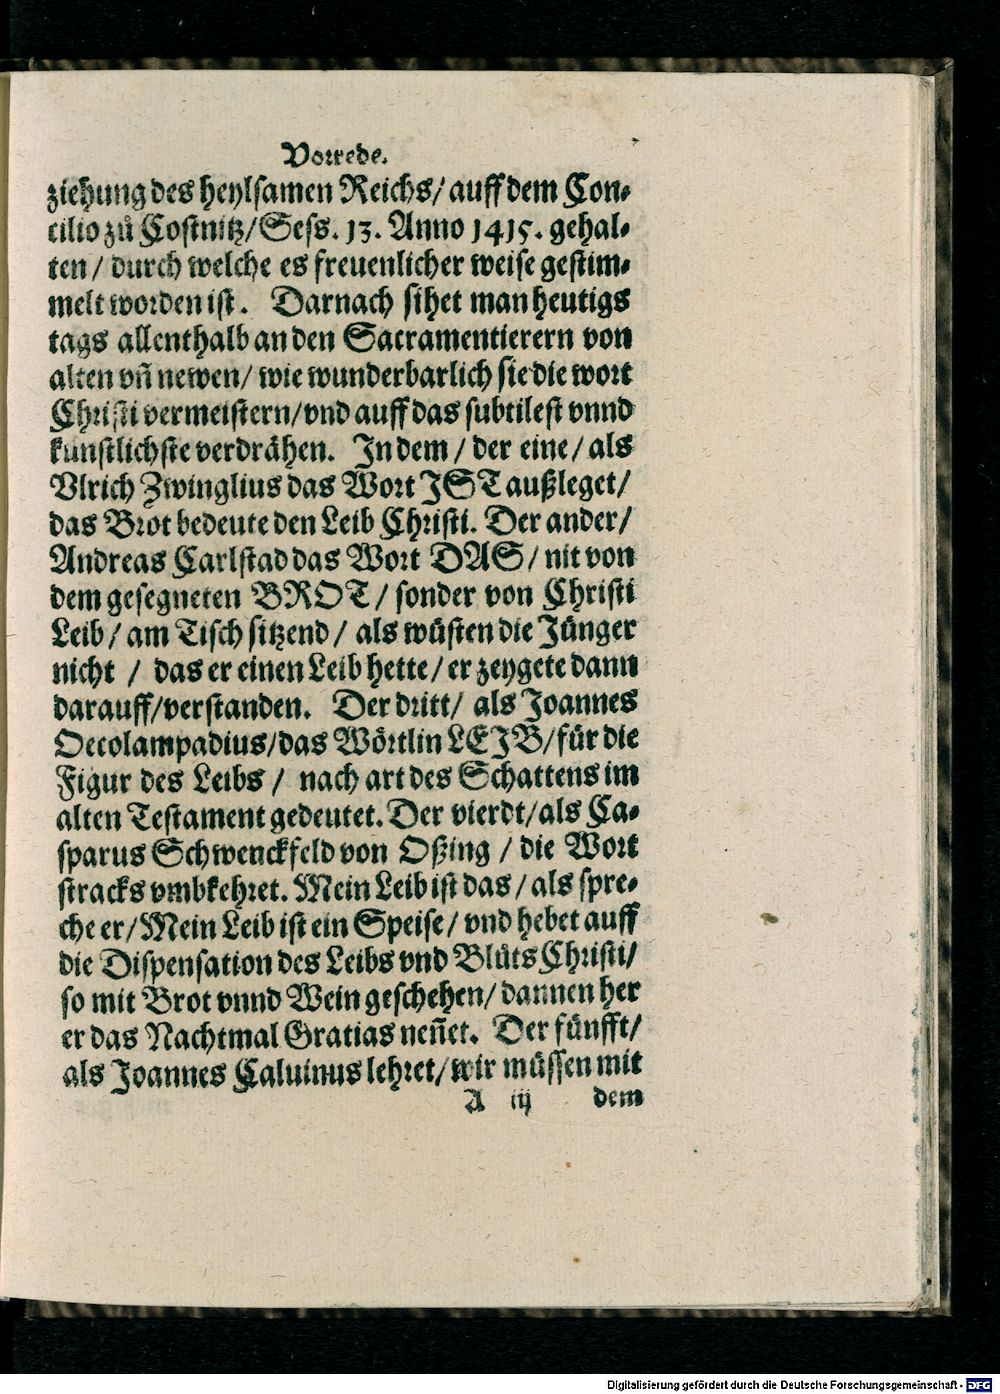 Vorrede.
ziehung des heylsamen Reichs/ auff dem Con-
cilio zů Costnitz/ Sess. 13. Anno 1415. gehal-
ten / durch welche es freuenlicher weise gestim-
melt worden ist. Darnach sihet man heutigs
tags allenthalb an den Sacramentierern von
alten vñ newen/ wie wunderbarlich sie die wort
Christi vermeistern/ vnd auff das subtilest vnnd
kunstlichste verdråhen. In dem / der eine / als
Vlrich Zwinglius das Wort IST außleget/
das Brot bedeute den Leib Christi. Der ander/
Andreas Carlstad das Wort DAS / nit von
dem gesegneten BROT / sonder von Christi
Leib / am Tisch sitzend / als wůsten die Jünger
nicht / das er einen Leib hette/ er zeygete dann
darauff/ verstanden. Der dritt/ als Joannes
Oecolampadius/ das Wörtlin LEIB/ für die
Figur des Leibs / nach art des Schattens im
alten Testament gedeutet. Der vierdt/ als Ca-
sparus Schwenckfeld von Oßing / die Wort
stracks vmbkehret. Mein Leib ist das / als spre-
che er/ Mein Leib ist ein Speise/ vnd hebet auff
die Dispensation des Leibs vnd Blůts Christi/
so mit Brot vnnd Wein geschehen/ dannen her
er das Nachtmal Gratias neñet. Der fünfft/
als Joannes Caluinus lehret/ wir müssen mit
A iij dem
Digitalisierung gefördert durch die Deutsche Forschungsgemeinschaft - DFG